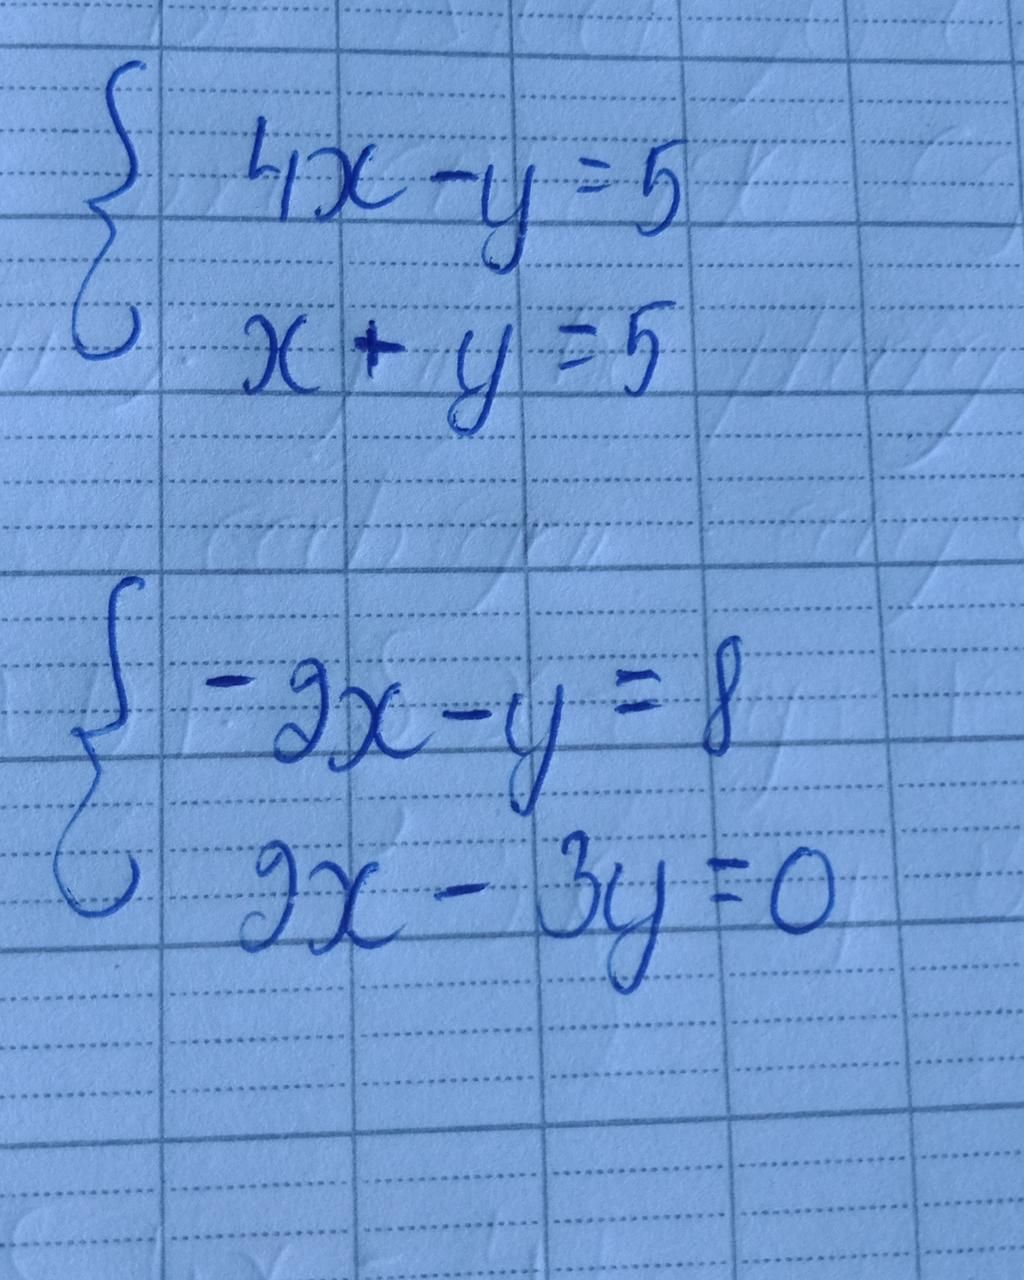 4x - y = 5
x + y = 5
- 2x - y = 8
2x - 3y = 0